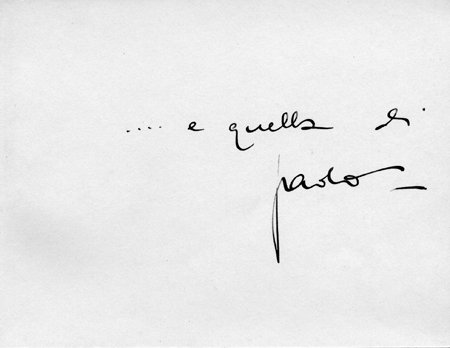 .... e quella di
paolo